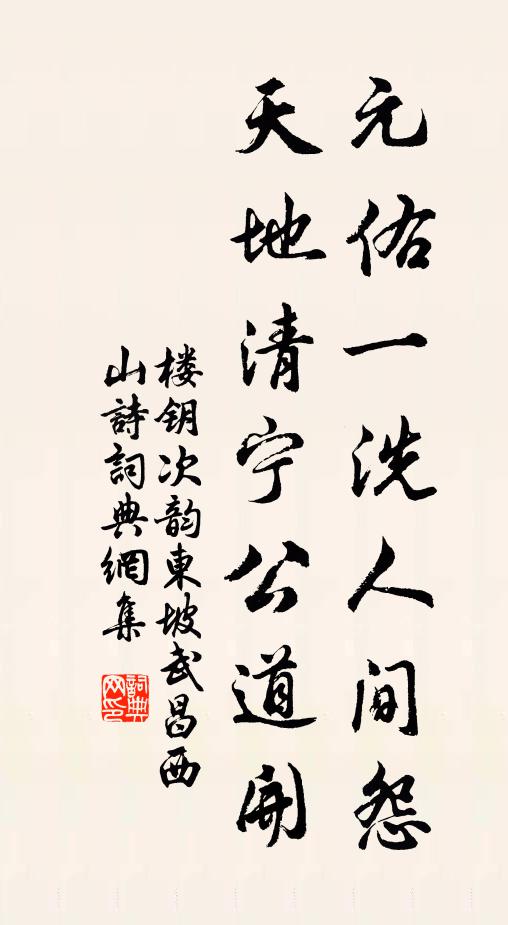 元佑一洗人间怨
天地清宁公道開
楼钥次韵東坡武昌西
山詩詞典網集
詞典
网印